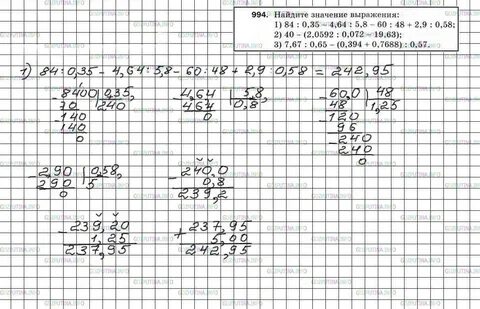 994. Найдите значение выражения:
1) 84 : 0,35 – 4,64 : 5,8 – 60 : 48 + 2,9 : 0,58;
2) 40 – (2,0592 : 0,072 – 19,63);
3) 7,67 : 0,65 – (0,394 + 0,7688) : 0,57.
1) 84 : 0,35 – 4,64 : 5,8 – 60 : 48 + 2,9 : 0,58 = 242,95
8400 | 0,35,
70 240
– 140
140
0
– 4,64 | 5,8,
464 0,8
0
– 60,0 | 48
48 1,25
– 120
96
– 240
240
0
– 2,90 | 0,58,
290 5
0
– 240,0
0,8
239,2
– 239,20
1,25
237,95
+ 237,95
5,00
242,95
GDZPUTINA.INFO